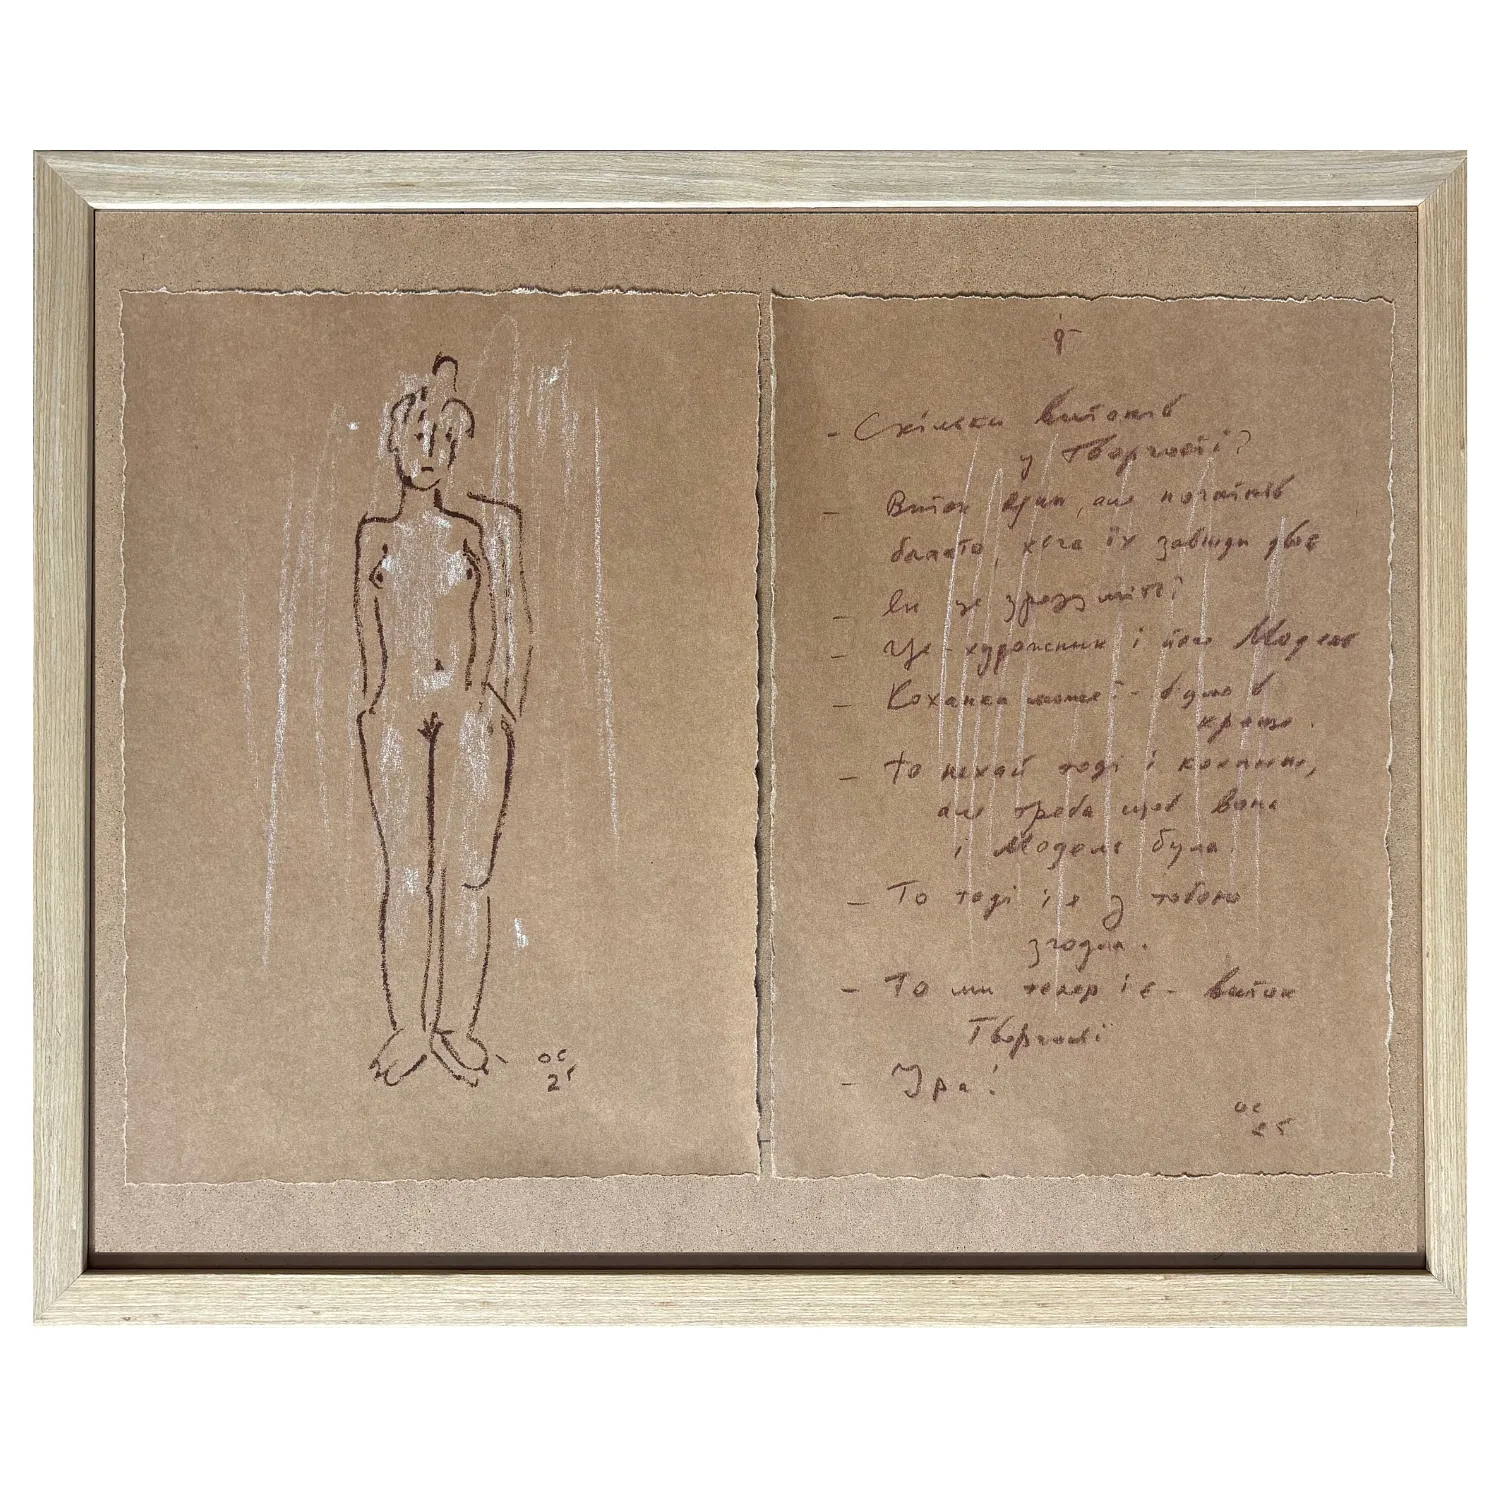 ОС
25
9
- Скільки витоків
у Творчості?
- Виток один, але початків
багато, хоча їх завжди двоє
- Як це зрозуміти?
- Це - художник і його Модель
- Коханка може? - було б
краще.
- То нехай тоді і коханка,
але треба щоб вона
і Модель була.
- То тоді і я з тобою
згодна.
- То ми тепер і є - виток
Творчості
- Ура!
ОС
25